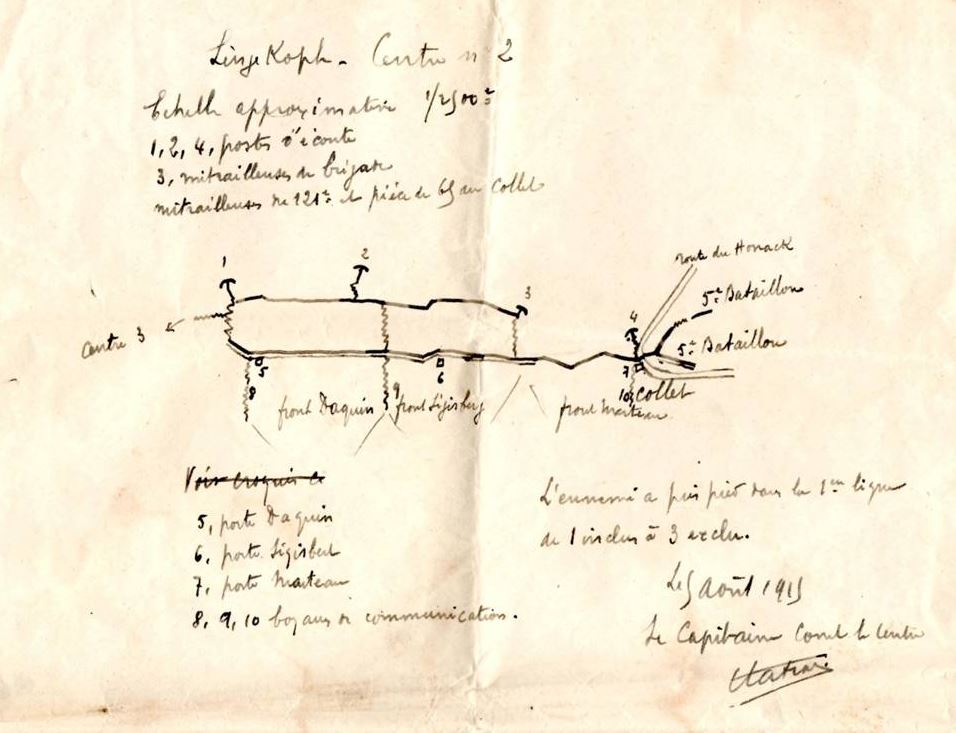 LingeKopf - Centre n° 2
Echelle approximative 1/2500e
1, 2, 4, postes d'écoute
3, mitrailleuses de brigade
mitrailleuses du 121e et pièce de 65 au Collet
route du Honack
1
2
3
5e Bataillon
centre 3
4
5e Bataillon
5
6
7
8
9
10
Collet
front Daquin
front Sigisbert
front Marteau
Voir croquis
L'ennemi a pris pied dans la 1ère ligne
de 1 inclus à 3 exclu.
5, poste Daquin
6, poste Sigisbert
7, poste Marteau
8, 9, 10 boyaux de communication.
Le 5 Août 1915
Le Capitaine Comt le Centre